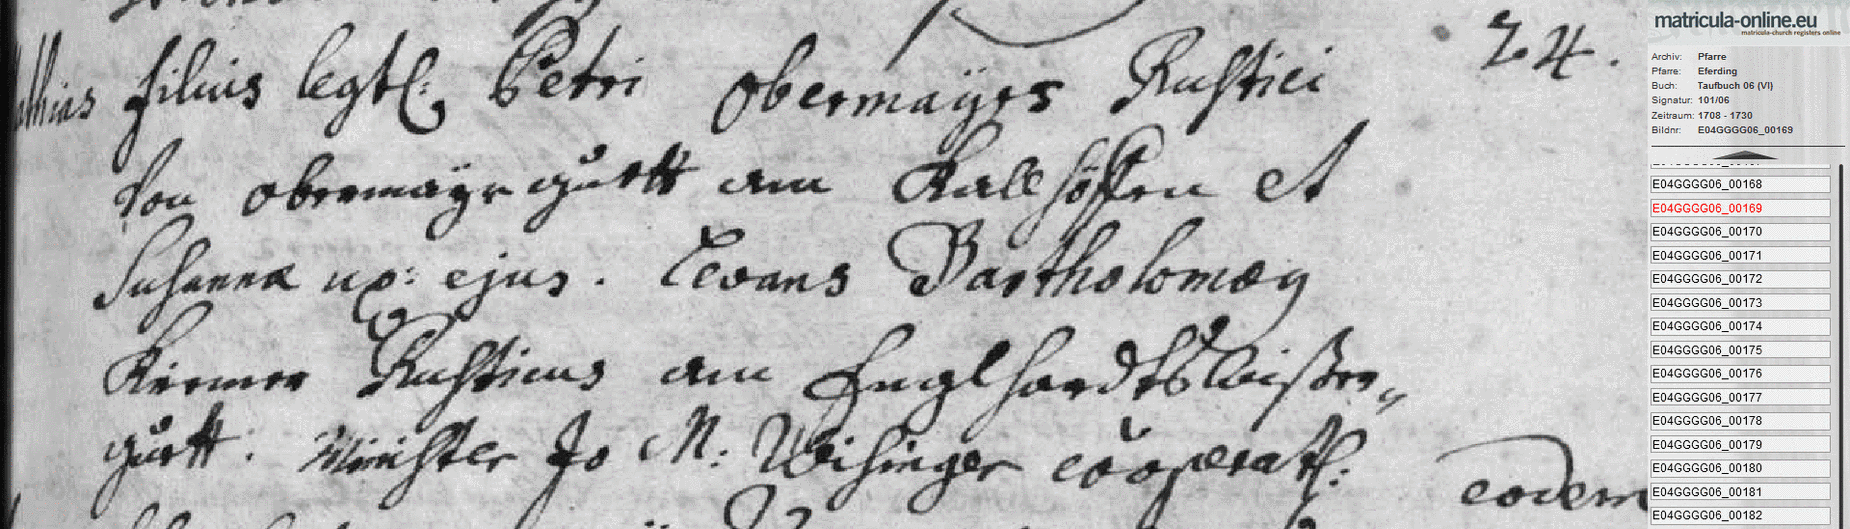 filius legtl: Petri Obermayrs Rustici 24.
von obermayr guett am
Susanna ux: ejus. Levans Bartholomæy
Rusticus am
guett. Minister Jo M: Wisinger cooperat:
eodem
matricula-online.eu
matricula-church registers online
Archiv: Pfarre
Pfarre: Eferding
Buch: Taufbuch 06 (VI)
Signatur: 101/06
Zeitraum: 1708 - 1730
Bildnr: E04GGGG06_00169
E04GGGG06_00168
E04GGGG06_00169
E04GGGG06_00170
E04GGGG06_00171
E04GGGG06_00172
E04GGGG06_00173
E04GGGG06_00174
E04GGGG06_00175
E04GGGG06_00176
E04GGGG06_00177
E04GGGG06_00178
E04GGGG06_00179
E04GGGG06_00180
E04GGGG06_00181
E04GGGG06_00182